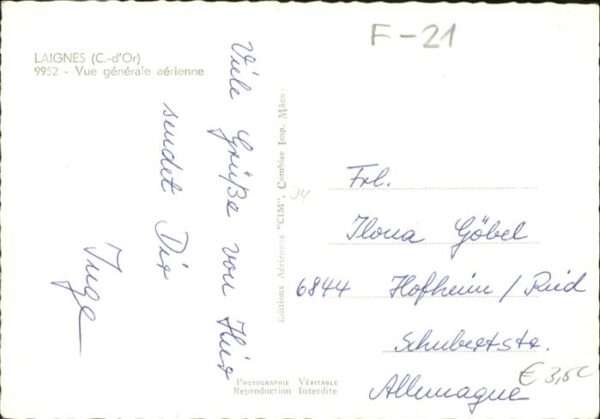 LAIGNES (C.-d'Or)
9952 - Vue générale aérienne
F-21
Viele Grüße von Hier
sendet Dir
Inge
Editions Aériennes "CIM", Combier Imp. Mâcon
Frl.
Ilona Göbel
6844 Hofheim / Ried
Schubertstr.
Allemagne
Photographie Véritable
Reproduction Interdite